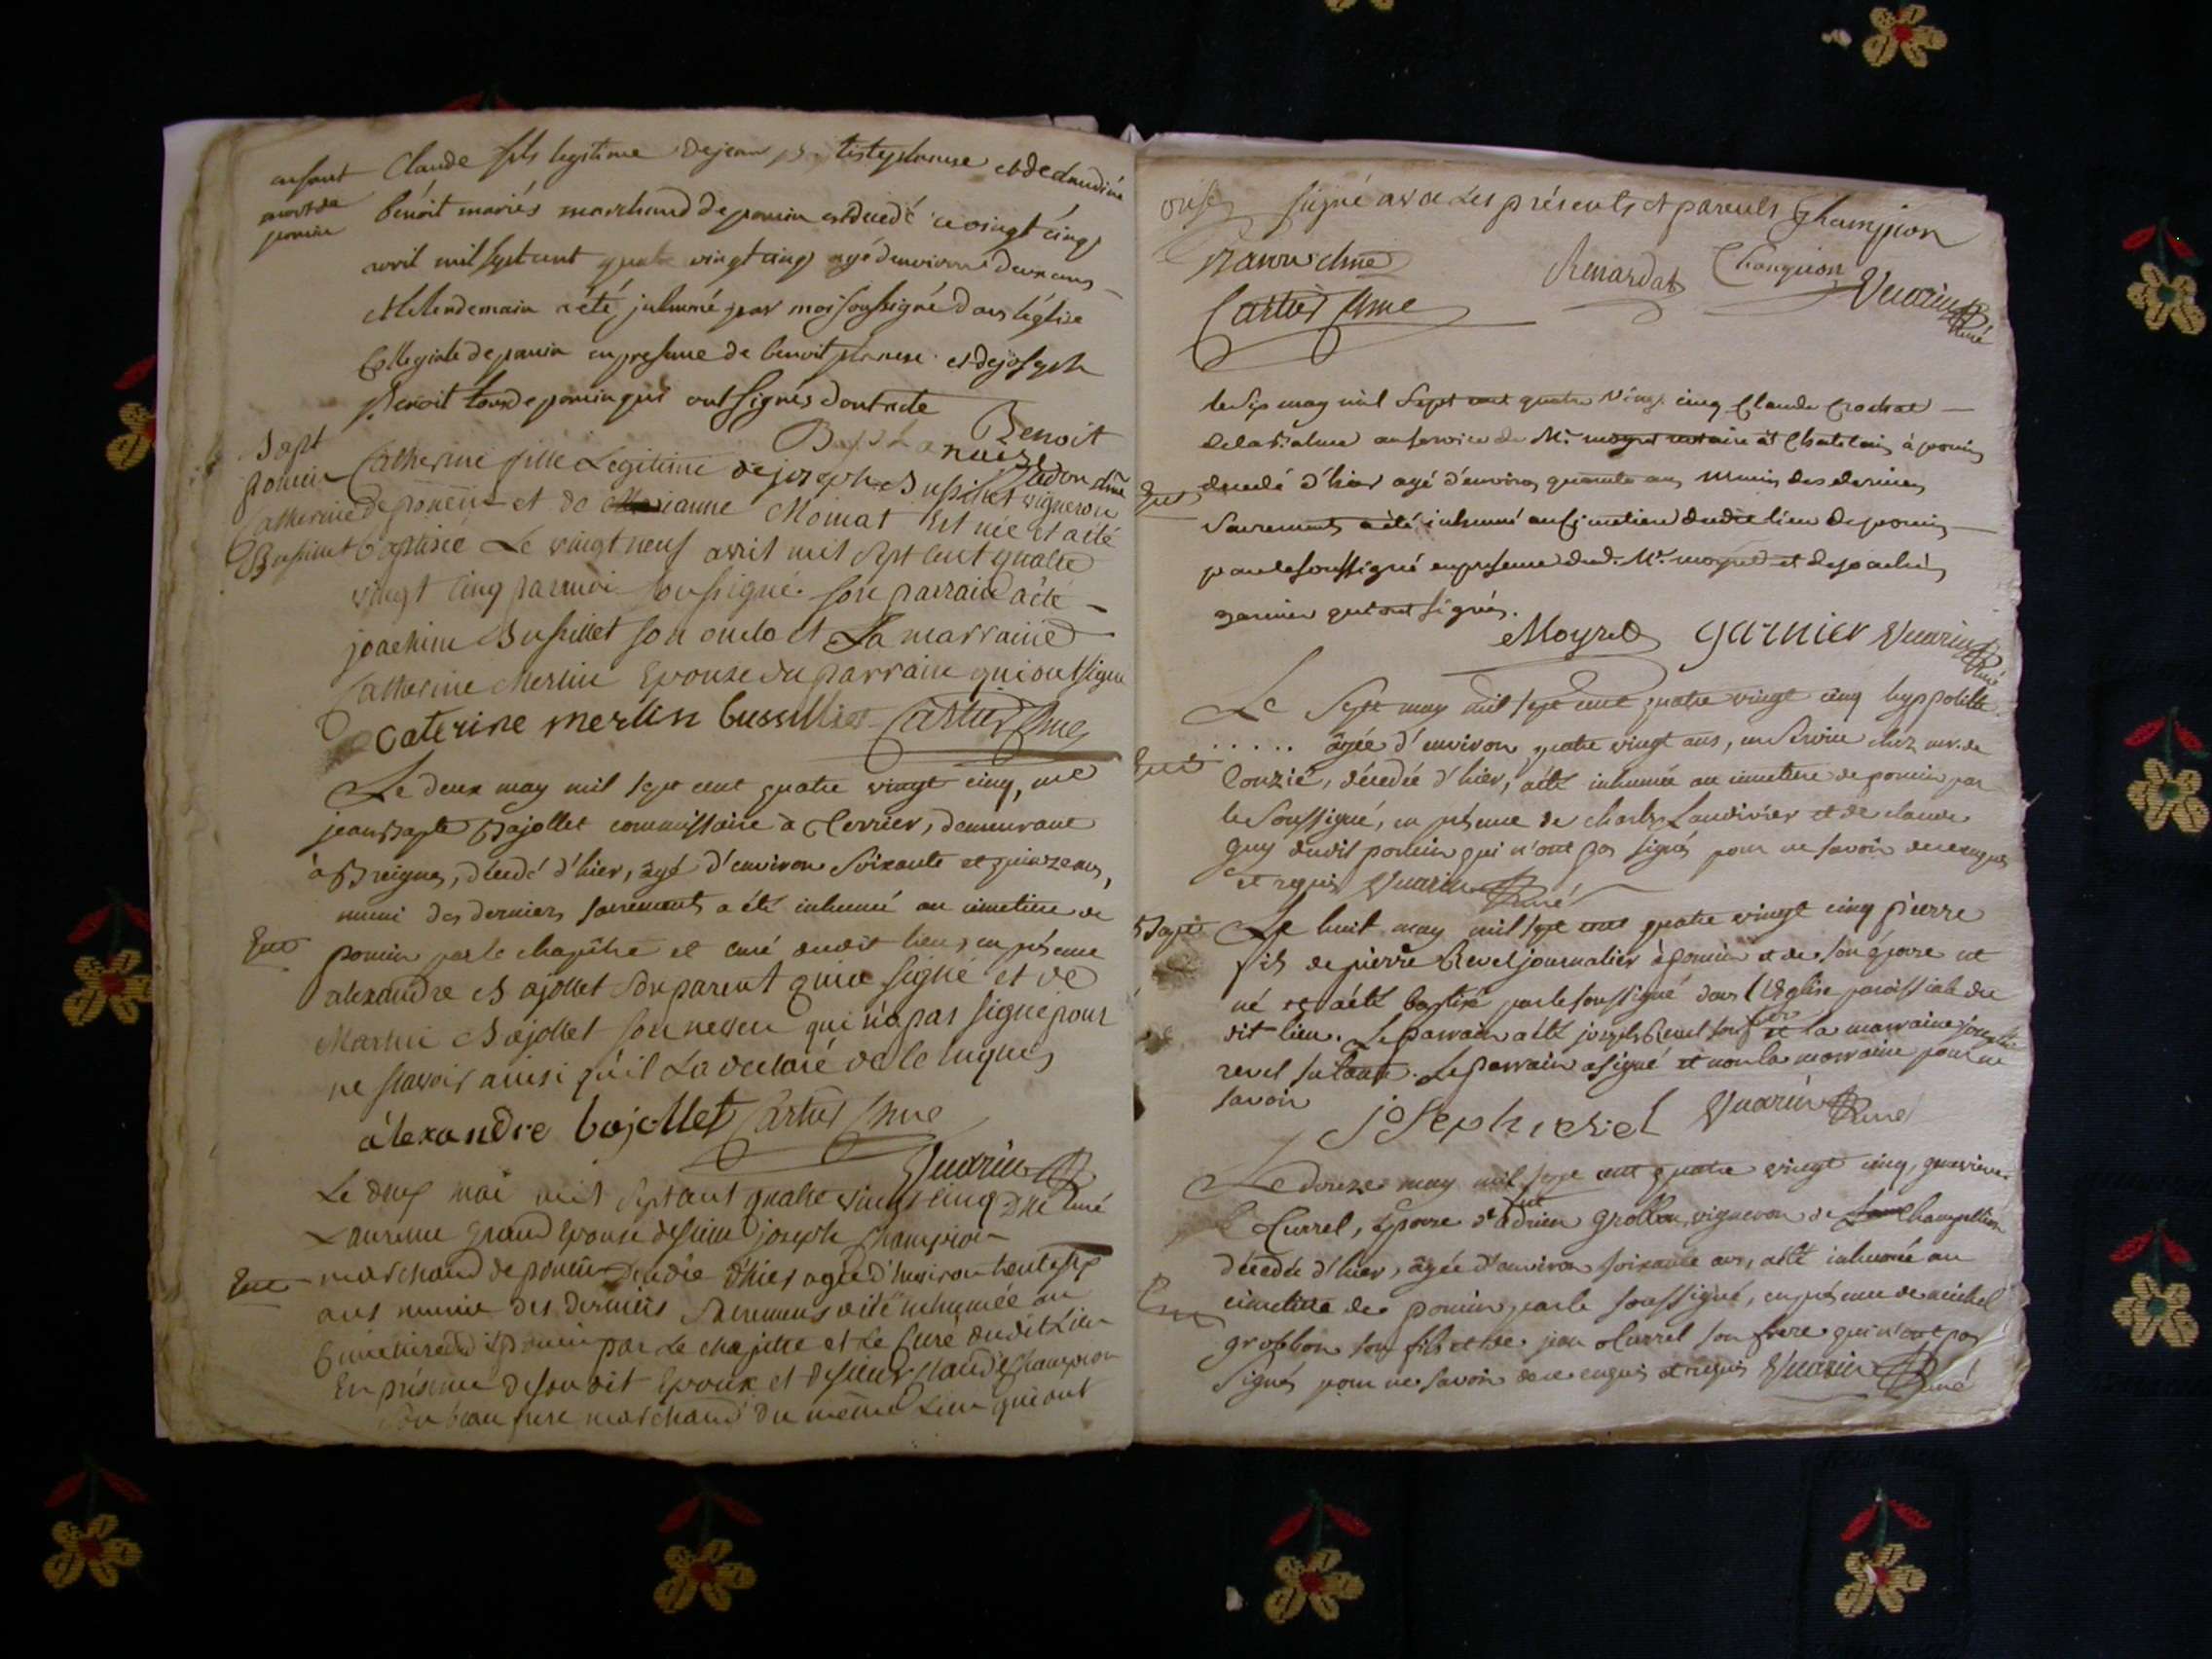 enfant Claude fils legitime de jean b. tiste planese et de claudine
mort de benoit mariés marchand de poncin est decedé ce vingt cinq
poncin avril mil sept cent quatre vingt cinq agé d'environ deux ans
et le lendemain a été inhumé par moi soussigné dans l'église
Collegiale de poncin en presence de benoit et de joseph
Benoit tous de poncin qui ont signés dont acte
Benoit
Bapt
poncin Catherine fille Legitime de joseph Bussillet vigneron
Catherine de poncin et de Marianne Moinat Est née et a été
Bussillet baptisée Le vingt neuf avril mil sept cent quatre
vingt cinq par moi soussigné son parrain a été
joachim Bussillet son oncle et La marraine
Catherine Merlin Epouse du parrain qui ont signé
caterine merlin bussilliet Cartier chne
Le deux may mil sept cent quatre vingt cinq, me
jean Bapte Bajollet commissaire à Terrier, demeurant
à Breignes, décédé d'hier, agé d'environ soixante et quinze ans,
muni des derniers sacrements a été inhumé au cimetiere de
Ent poncin par le chapitre et curé dudit lieu, en présence
alexandre Bajollet son parent qui a signé et de
Martin Bajollet son neveu qui n'a pas signé pour
ne scavoir ainsi qu'il La declaré de ce enquis
alexandre bajollet Cartier chne
Vuarin curé
Le dix mai mil sept cent quatre vingt cinq Dlle
Laurence Grand Epouse de sieur joseph Champion
Ent marchand de poncin decedée d'hier agée d'environ trente six
ans munie des derniers Sacremens a été inhumée au
Cimetiere dudit poncin par Le chapitre et Le Curé dudit Lieu
En présence de son dit Epoux et de sieur Claude Champion
son beau frere marchand du même Lieu qui ont
onze
signé avec Les présents et parents Champion
chne Renardat Vuarin curé
Cartier chne
le six may mil sept cent quatre vingt cinq Claude Crochat
de la Balme au service de Mr. moyret notaire et Chatelain à poncin
Ent decedé d'hier agé d'environ quarante ans muni des derniers
Sacrements a été inhumé au cimetiere dudit lieu de poncin
par le soussigné en presence dud. Mr. moyret et de joachin
garnier qui ont signés.
Moyret garnier Vuarin curé
Le sept may mil sept cent quatre vingt cinq hyppolitte
..... âgée d'environ quatre vingt ans, en service chez mr. de
Ent Conzié, décedée d'hier, a été inhumée au cimetiere de poncin par
le soussigné, en présence de charles Landivier et de claude
guy dudit poncin qui n'ont pas signés pour ne savoir de ce enquis
et requis Vuarin curé
Bapte Le huit may mil sept cent quatre vingt cinq pierre
fils de pierre Revel journalier à poncin et de son épouse est
né et a été baptisé par le soussigné dans l'Eglise paroissiale du
dit lieu. Le parrain a été joseph Revel son et la marraine
revel sa tante. Le parrain a signé et non la marraine pour ne
savoir
joseph revel Vuarin curé
Le douze may mil sept cent quatre vingt cinq,
Curral, Epouse d'adrien Grobbon, vigneron de Champellion
décedée d'hier, âgée d'environ soixante ans, a été inhumée au
Ent cimetiere de poncin par le soussigné, en présence de michel
grobbon son fils et de jean Curral son frere qui n'ont pas
signés pour ne savoir de ce enquis et requis Vuarin curé